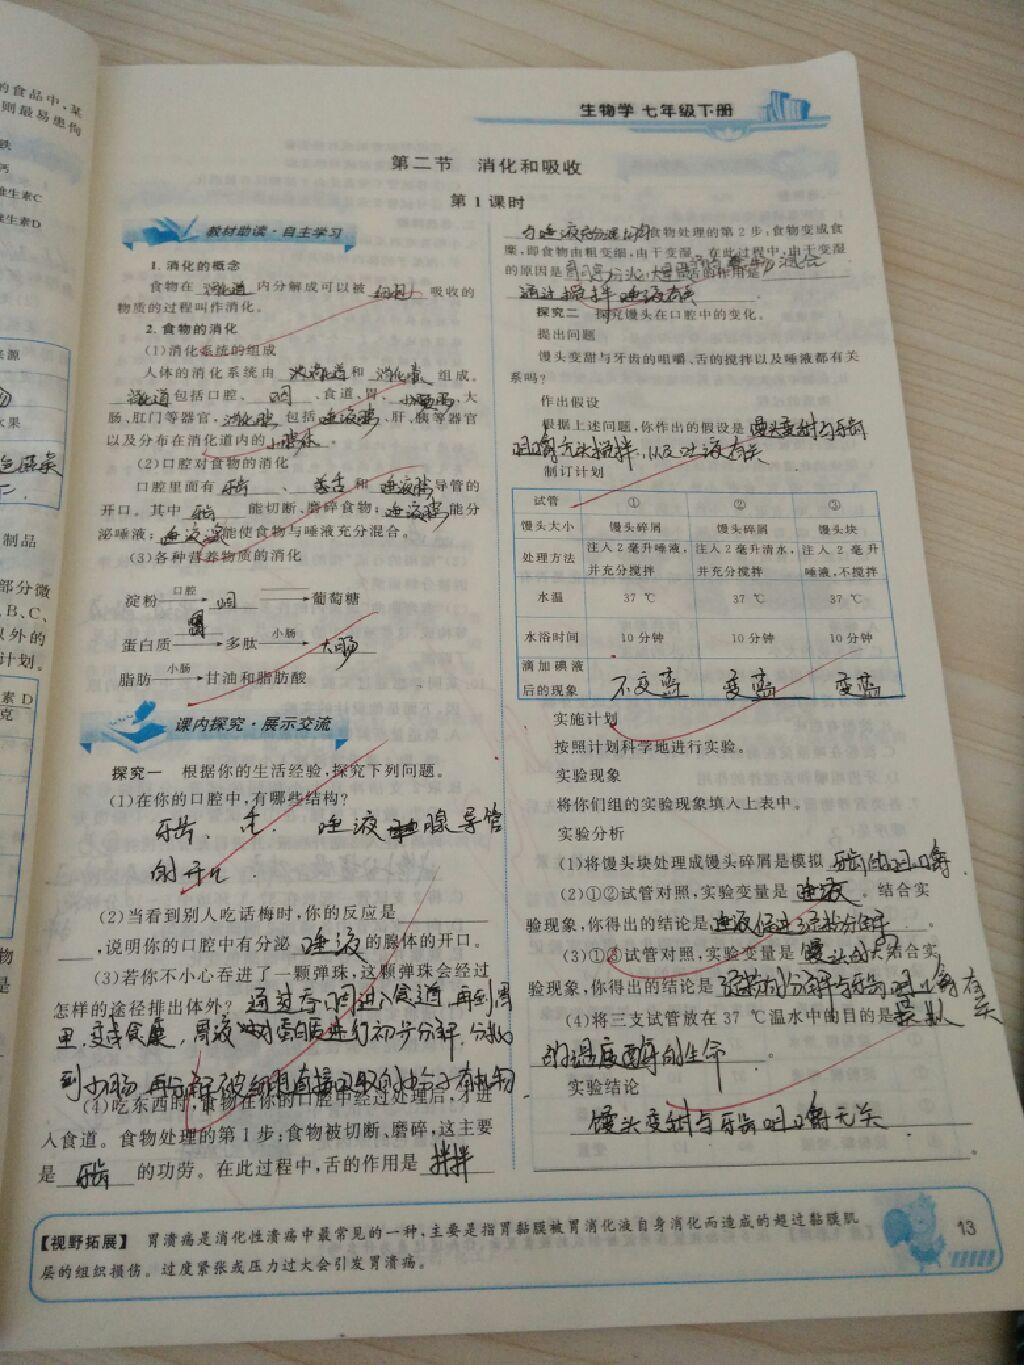 的食品中,某
则最易患佝
铁
钙
维生素C
维生素D
来源
水果
制品
部分微
、B、C、
以外的
计划。
素 D
克
物
是
生物学 七年级下册
第二节 消化和吸收
第 1 课时
教材助读·自主学习
1. 消化的概念
食物在 消化道 内分解成可以被 细胞 吸收的
物质的过程叫作消化。
2. 食物的消化
(1)消化系统的组成
人体的消化系统由 消化道 和 消化腺 组成。
消化道 包括口腔、 咽 、食道、胃、 小肠 、大
肠、肛门等器官, 消化腺 包括 唾液腺 、肝、胰等器官
以及分布在消化道内的 小腺体 。
(2)口腔对食物的消化
口腔里面有 牙齿 、 舌 和 唾液腺 导管的
开口。其中 牙齿 能切断、磨碎食物; 唾液腺 能分
泌唾液; 能使食物与唾液充分混合。
(3)各种营养物质的消化
淀粉 口腔 咽 葡萄糖
蛋白质 胃 多肽 小肠 大肠
脂肪 小肠 甘油和脂肪酸
课内探究·展示交流
探究一 根据你的生活经验,探究下列问题。
(1)在你的口腔中,有哪些结构?
牙齿、舌、唾液腺导管
的开口.
(2)当看到别人吃话梅时,你的反应是
,说明你的口腔中有分泌 唾液 的腺体的开口。
(3)若你不小心吞进了一颗弹珠,这颗弹珠会经过
怎样的途径排出体外? 通过 咽进入食道,再到胃
里,变成食糜,胃液 对蛋白质进行初步分解,
到小肠,再分解
(4)吃东西时,食物在你的口腔中经过处理后,才进
入食道。食物处理的第 1 步:食物被切断、磨碎,这主要
是 牙齿 的功劳。在此过程中,舌的作用是 搅拌
与唾液充分混合 食物处理的第 2 步:食物变成食
糜,即食物由粗变细,由干变湿。在此过程中,由干变湿
的原因是 舌的作用是 混合
通过搅拌 唾液有关 。
探究二 探究馒头在口腔中的变化。
提出问题
馒头变甜与牙齿的咀嚼、舌的搅拌以及唾液都有关
系吗?
作出假设
根据上述问题,你作出的假设是 馒头变甜与牙齿
咀嚼、舌头搅拌,以及唾液有关
制订计划
试管 ① ② ③
馒头大小 馒头碎屑 馒头碎屑 馒头块
处理方法 注入 2 毫升唾液, 注入 2 毫升清水, 注入 2 毫升
并充分搅拌 并充分搅拌 唾液,不搅拌
水温 37 ℃ 37 ℃ 37 ℃
水浴时间 10 分钟 10 分钟 10 分钟
滴加碘液
后的现象 不变蓝 变蓝 变蓝
实施计划
按照计划科学地进行实验。
实验现象
将你们组的实验现象填入上表中。
实验分析
(1)将馒头块处理成馒头碎屑是模拟 牙齿的咀嚼
(2)①②试管对照,实验变量是 唾液 。结合实
验现象,你得出的结论是 唾液促进淀粉分解 。
(3)①③试管对照,实验变量是 馒头的 结合实
验现象,你得出的结论是 淀粉的分解与牙齿咀嚼有关
(4)将三支试管放在 37 ℃温水中的目的是 模拟
的温度 。
实验结论
馒头变甜与牙齿咀嚼无关
。
【视野拓展】 胃溃疡是消化性溃疡中最常见的一种,主要是指胃黏膜被胃消化液自身消化而造成的超过黏膜肌
层的组织损伤。过度紧张或压力过大会引发胃溃疡。
13